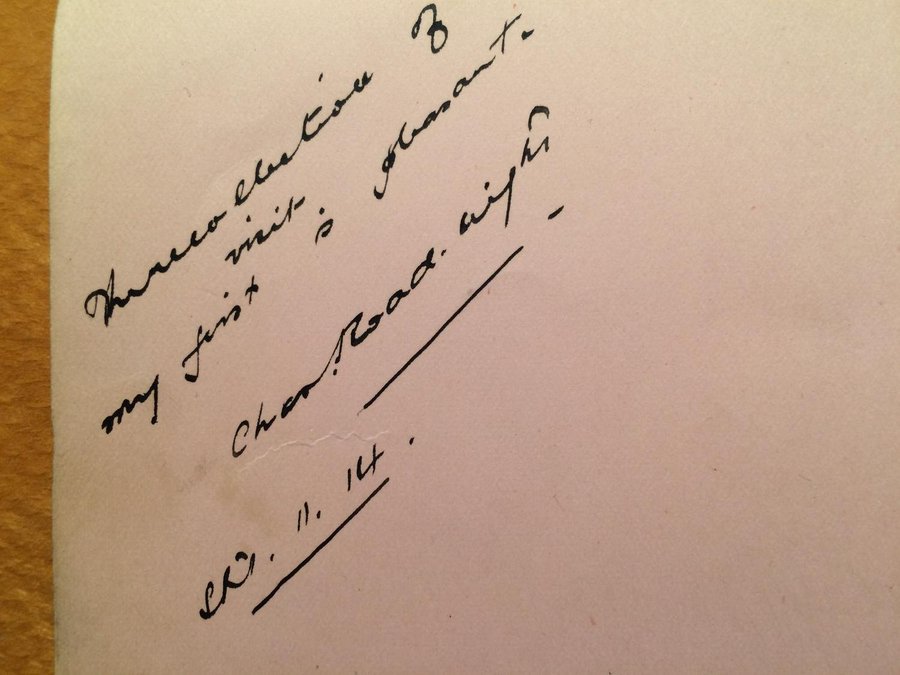 The recollection of
my first visit is pleasant.
Chas. Roadnight
11. 14.